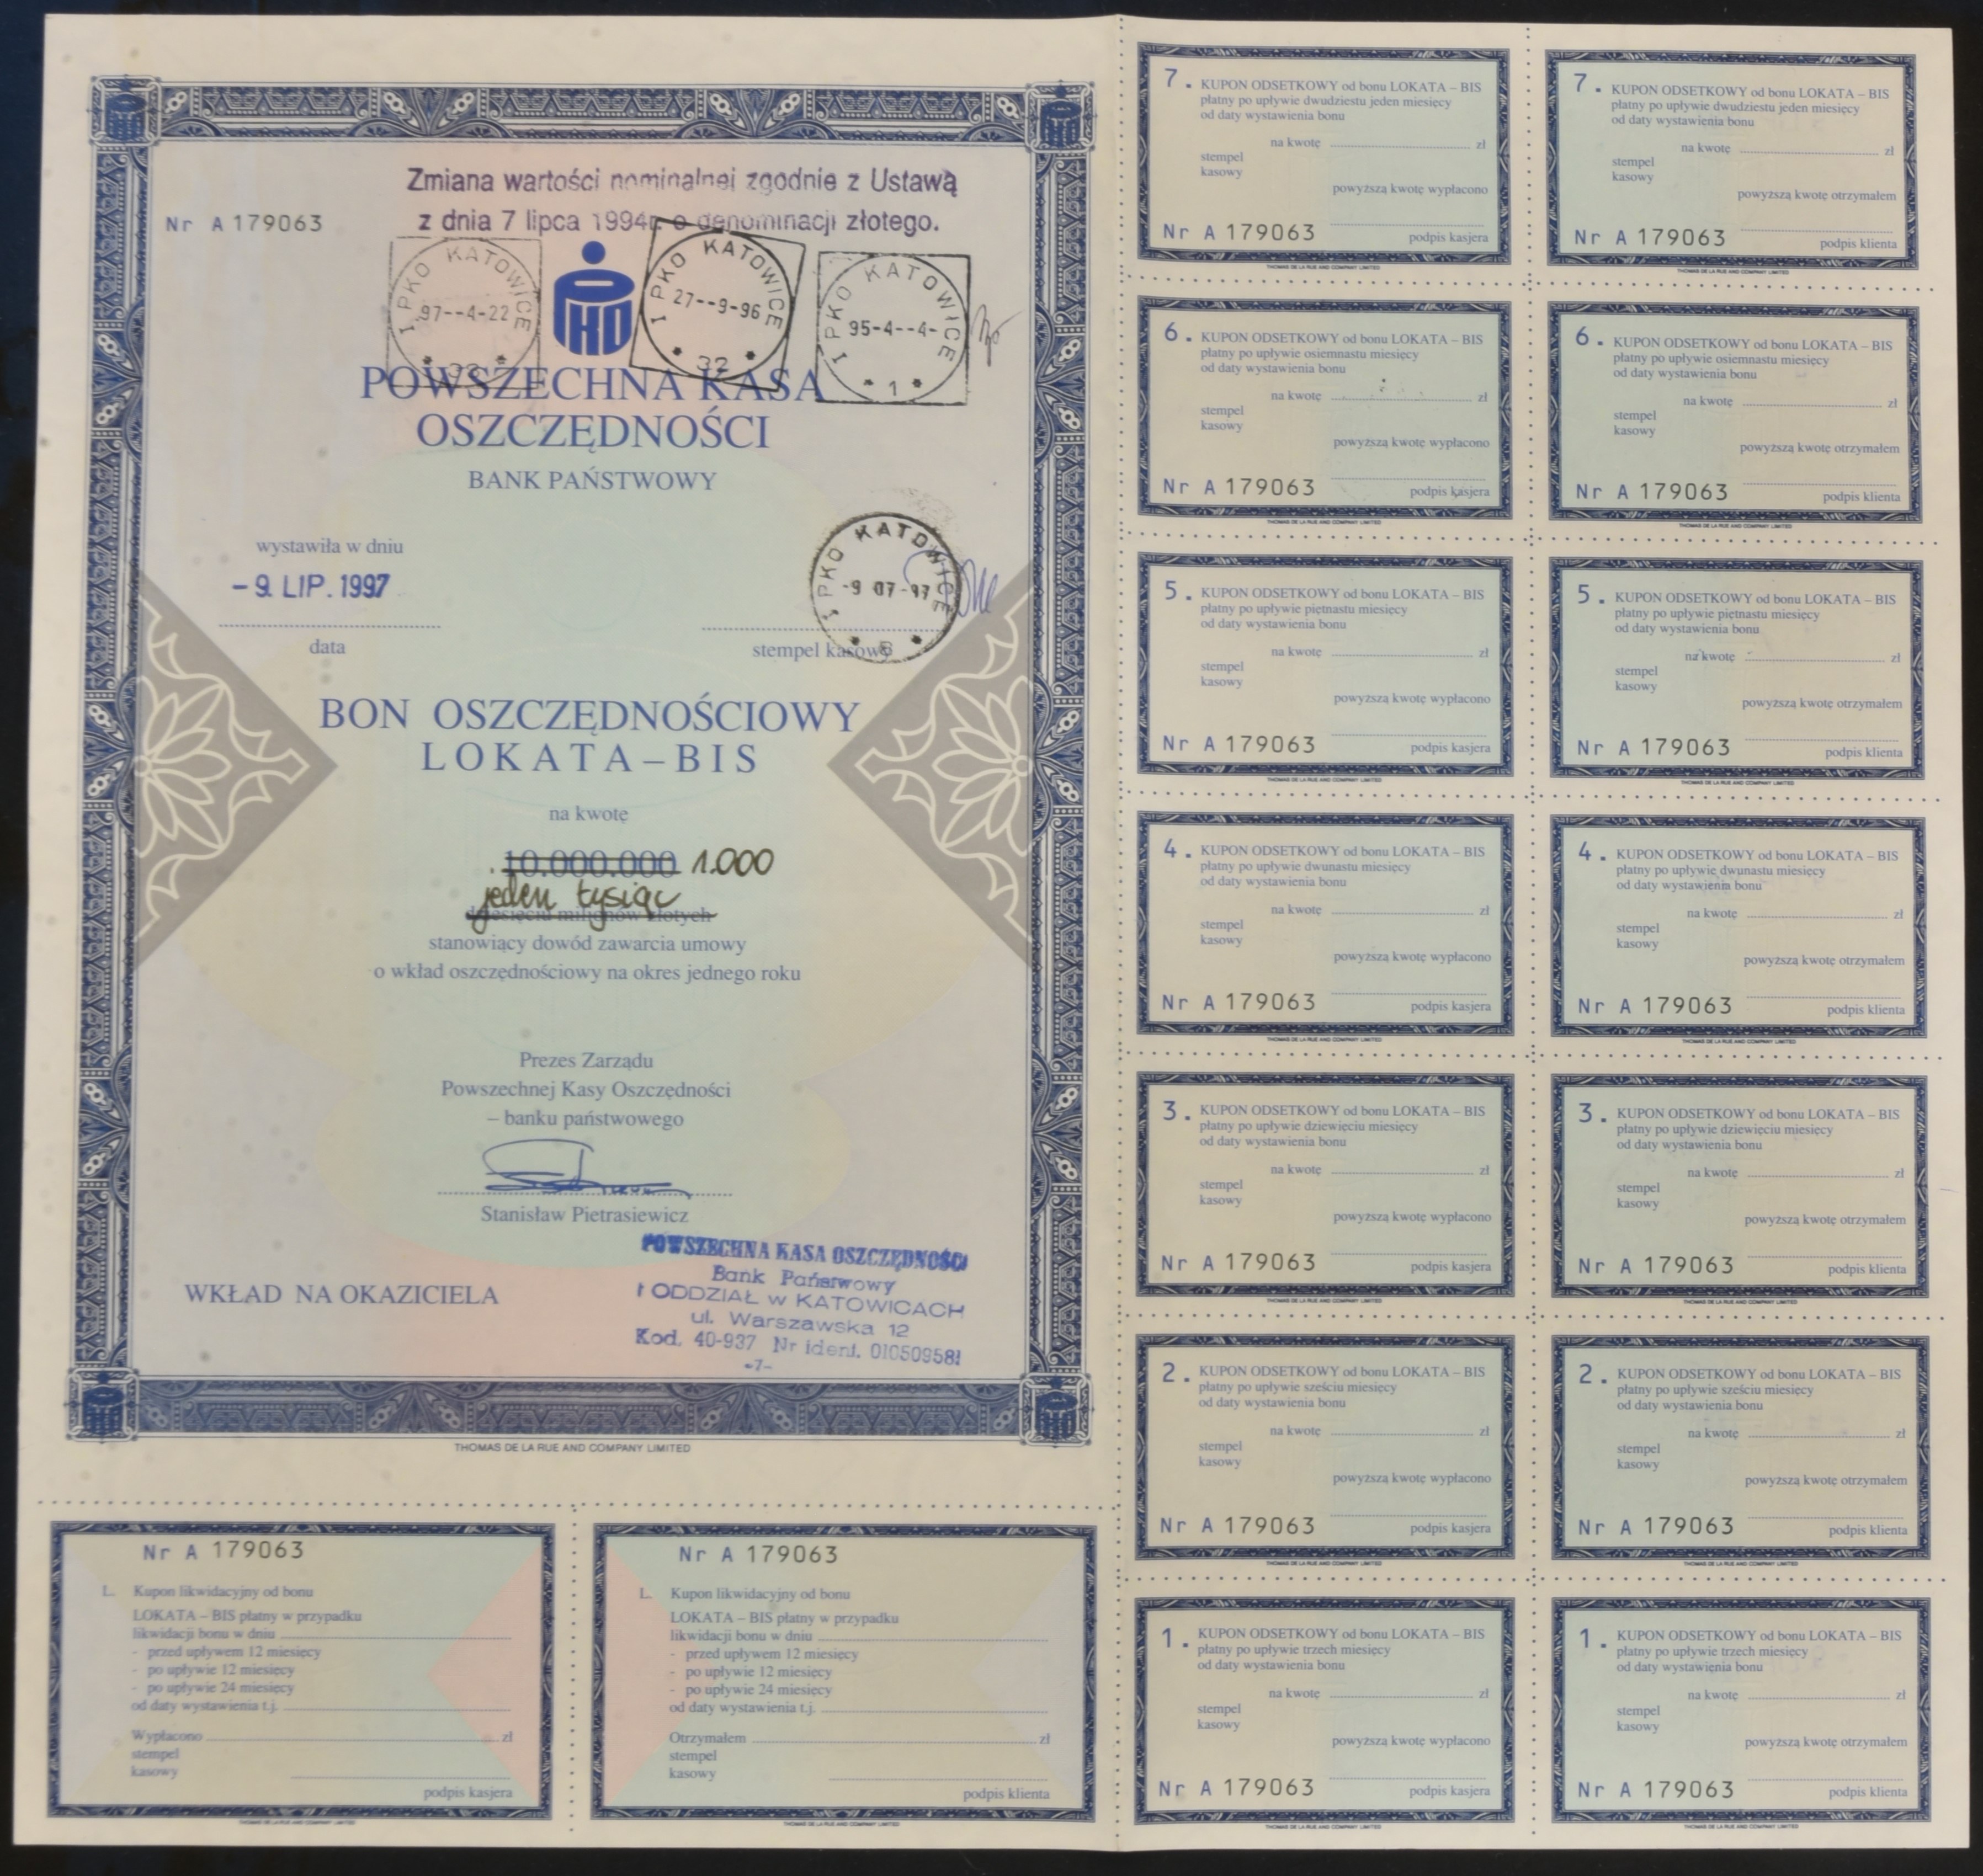 Zmiana wartości nominalnej zgodnie z Ustawą
z dnia 7 lipca 1994r. o denominacji złotego.
Nr A 179063
I PKO KATOWICE
97--4-22
I PKO KATOWICE
27--9-96
* 32 *
I PKO KATOWICE
95-4--4-
* 1 *
PKO
POWSZECHNA KASA
OSZCZĘDNOŚCI
BANK PAŃSTWOWY
wystawiła w dniu
- 9. LIP. 1997
data
I PKO KATOWICE
-9 07-97
stempel kasowy
BON OSZCZĘDNOŚCIOWY
LOKATA – BIS
na kwotę
10.000.000 1.000
jeden tysiąc
dziesięciu milionów złotych
stanowiący dowód zawarcia umowy
o wkład oszczędnościowy na okres jednego roku
Prezes Zarządu
Powszechnej Kasy Oszczędności
– banku państwowego
Stanisław Pietrasiewicz
WKŁAD NA OKAZICIELA
POWSZECHNA KASA OSZCZĘDNOŚCI
Bank Państwowy
I ODDZIAŁ w KATOWICACH
ul. Warszawska 12
Kod. 40-937 Nr ident. 010509581
-7-
THOMAS DE LA RUE AND COMPANY LIMITED
Nr A 179063
L. Kupon likwidacyjny od bonu
LOKATA – BIS płatny w przypadku
likwidacji bonu w dniu
- przed upływem 12 miesięcy
- po upływie 12 miesięcy
- po upływie 24 miesięcy
od daty wystawienia t.j.
Wypłacono zł
stempel
kasowy
podpis kasjera
THOMAS DE LA RUE AND COMPANY LIMITED
Nr A 179063
L. Kupon likwidacyjny od bonu
LOKATA – BIS płatny w przypadku
likwidacji bonu w dniu
- przed upływem 12 miesięcy
- po upływie 12 miesięcy
- po upływie 24 miesięcy
od daty wystawienia t.j.
Otrzymałem zł
stempel
kasowy
podpis klienta
THOMAS DE LA RUE AND COMPANY LIMITED
7. KUPON ODSETKOWY od bonu LOKATA – BIS
płatny po upływie dwudziestu jeden miesięcy
od daty wystawienia bonu
na kwotę zł
stempel
kasowy
powyższą kwotę wypłacono
Nr A 179063 podpis kasjera
THOMAS DE LA RUE AND COMPANY LIMITED
7. KUPON ODSETKOWY od bonu LOKATA – BIS
płatny po upływie dwudziestu jeden miesięcy
od daty wystawienia bonu
na kwotę zł
stempel
kasowy
powyższą kwotę otrzymałem
Nr A 179063 podpis klienta
THOMAS DE LA RUE AND COMPANY LIMITED
6. KUPON ODSETKOWY od bonu LOKATA – BIS
płatny po upływie osiemnastu miesięcy
od daty wystawienia bonu
na kwotę zł
stempel
kasowy
powyższą kwotę wypłacono
Nr A 179063 podpis kasjera
THOMAS DE LA RUE AND COMPANY LIMITED
6. KUPON ODSETKOWY od bonu LOKATA – BIS
płatny po upływie osiemnastu miesięcy
od daty wystawienia bonu
na kwotę zł
stempel
kasowy
powyższą kwotę otrzymałem
Nr A 179063 podpis klienta
THOMAS DE LA RUE AND COMPANY LIMITED
5. KUPON ODSETKOWY od bonu LOKATA – BIS
płatny po upływie piętnastu miesięcy
od daty wystawienia bonu
na kwotę zł
stempel
kasowy
powyższą kwotę wypłacono
Nr A 179063 podpis kasjera
THOMAS DE LA RUE AND COMPANY LIMITED
5. KUPON ODSETKOWY od bonu LOKATA – BIS
płatny po upływie piętnastu miesięcy
od daty wystawienia bonu
na kwotę zł
stempel
kasowy
powyższą kwotę otrzymałem
Nr A 179063 podpis klienta
THOMAS DE LA RUE AND COMPANY LIMITED
4. KUPON ODSETKOWY od bonu LOKATA – BIS
płatny po upływie dwunastu miesięcy
od daty wystawienia bonu
na kwotę zł
stempel
kasowy
powyższą kwotę wypłacono
Nr A 179063 podpis kasjera
THOMAS DE LA RUE AND COMPANY LIMITED
4. KUPON ODSETKOWY od bonu LOKATA – BIS
płatny po upływie dwunastu miesięcy
od daty wystawienia bonu
na kwotę zł
stempel
kasowy
powyższą kwotę otrzymałem
Nr A 179063 podpis klienta
THOMAS DE LA RUE AND COMPANY LIMITED
3. KUPON ODSETKOWY od bonu LOKATA – BIS
płatny po upływie dziewięciu miesięcy
od daty wystawienia bonu
na kwotę zł
stempel
kasowy
powyższą kwotę wypłacono
Nr A 179063 podpis kasjera
THOMAS DE LA RUE AND COMPANY LIMITED
3. KUPON ODSETKOWY od bonu LOKATA – BIS
płatny po upływie dziewięciu miesięcy
od daty wystawienia bonu
na kwotę zł
stempel
kasowy
powyższą kwotę otrzymałem
Nr A 179063 podpis klienta
THOMAS DE LA RUE AND COMPANY LIMITED
2. KUPON ODSETKOWY od bonu LOKATA – BIS
płatny po upływie sześciu miesięcy
od daty wystawienia bonu
na kwotę zł
stempel
kasowy
powyższą kwotę wypłacono
Nr A 179063 podpis kasjera
THOMAS DE LA RUE AND COMPANY LIMITED
2. KUPON ODSETKOWY od bonu LOKATA – BIS
płatny po upływie sześciu miesięcy
od daty wystawienia bonu
na kwotę zł
stempel
kasowy
powyższą kwotę otrzymałem
Nr A 179063 podpis klienta
THOMAS DE LA RUE AND COMPANY LIMITED
1. KUPON ODSETKOWY od bonu LOKATA – BIS
płatny po upływie trzech miesięcy
od daty wystawienia bonu
na kwotę zł
stempel
kasowy
powyższą kwotę wypłacono
Nr A 179063 podpis kasjera
THOMAS DE LA RUE AND COMPANY LIMITED
1. KUPON ODSETKOWY od bonu LOKATA – BIS
płatny po upływie trzech miesięcy
od daty wystawienia bonu
na kwotę zł
stempel
kasowy
powyższą kwotę otrzymałem
Nr A 179063 podpis klienta
THOMAS DE LA RUE AND COMPANY LIMITED